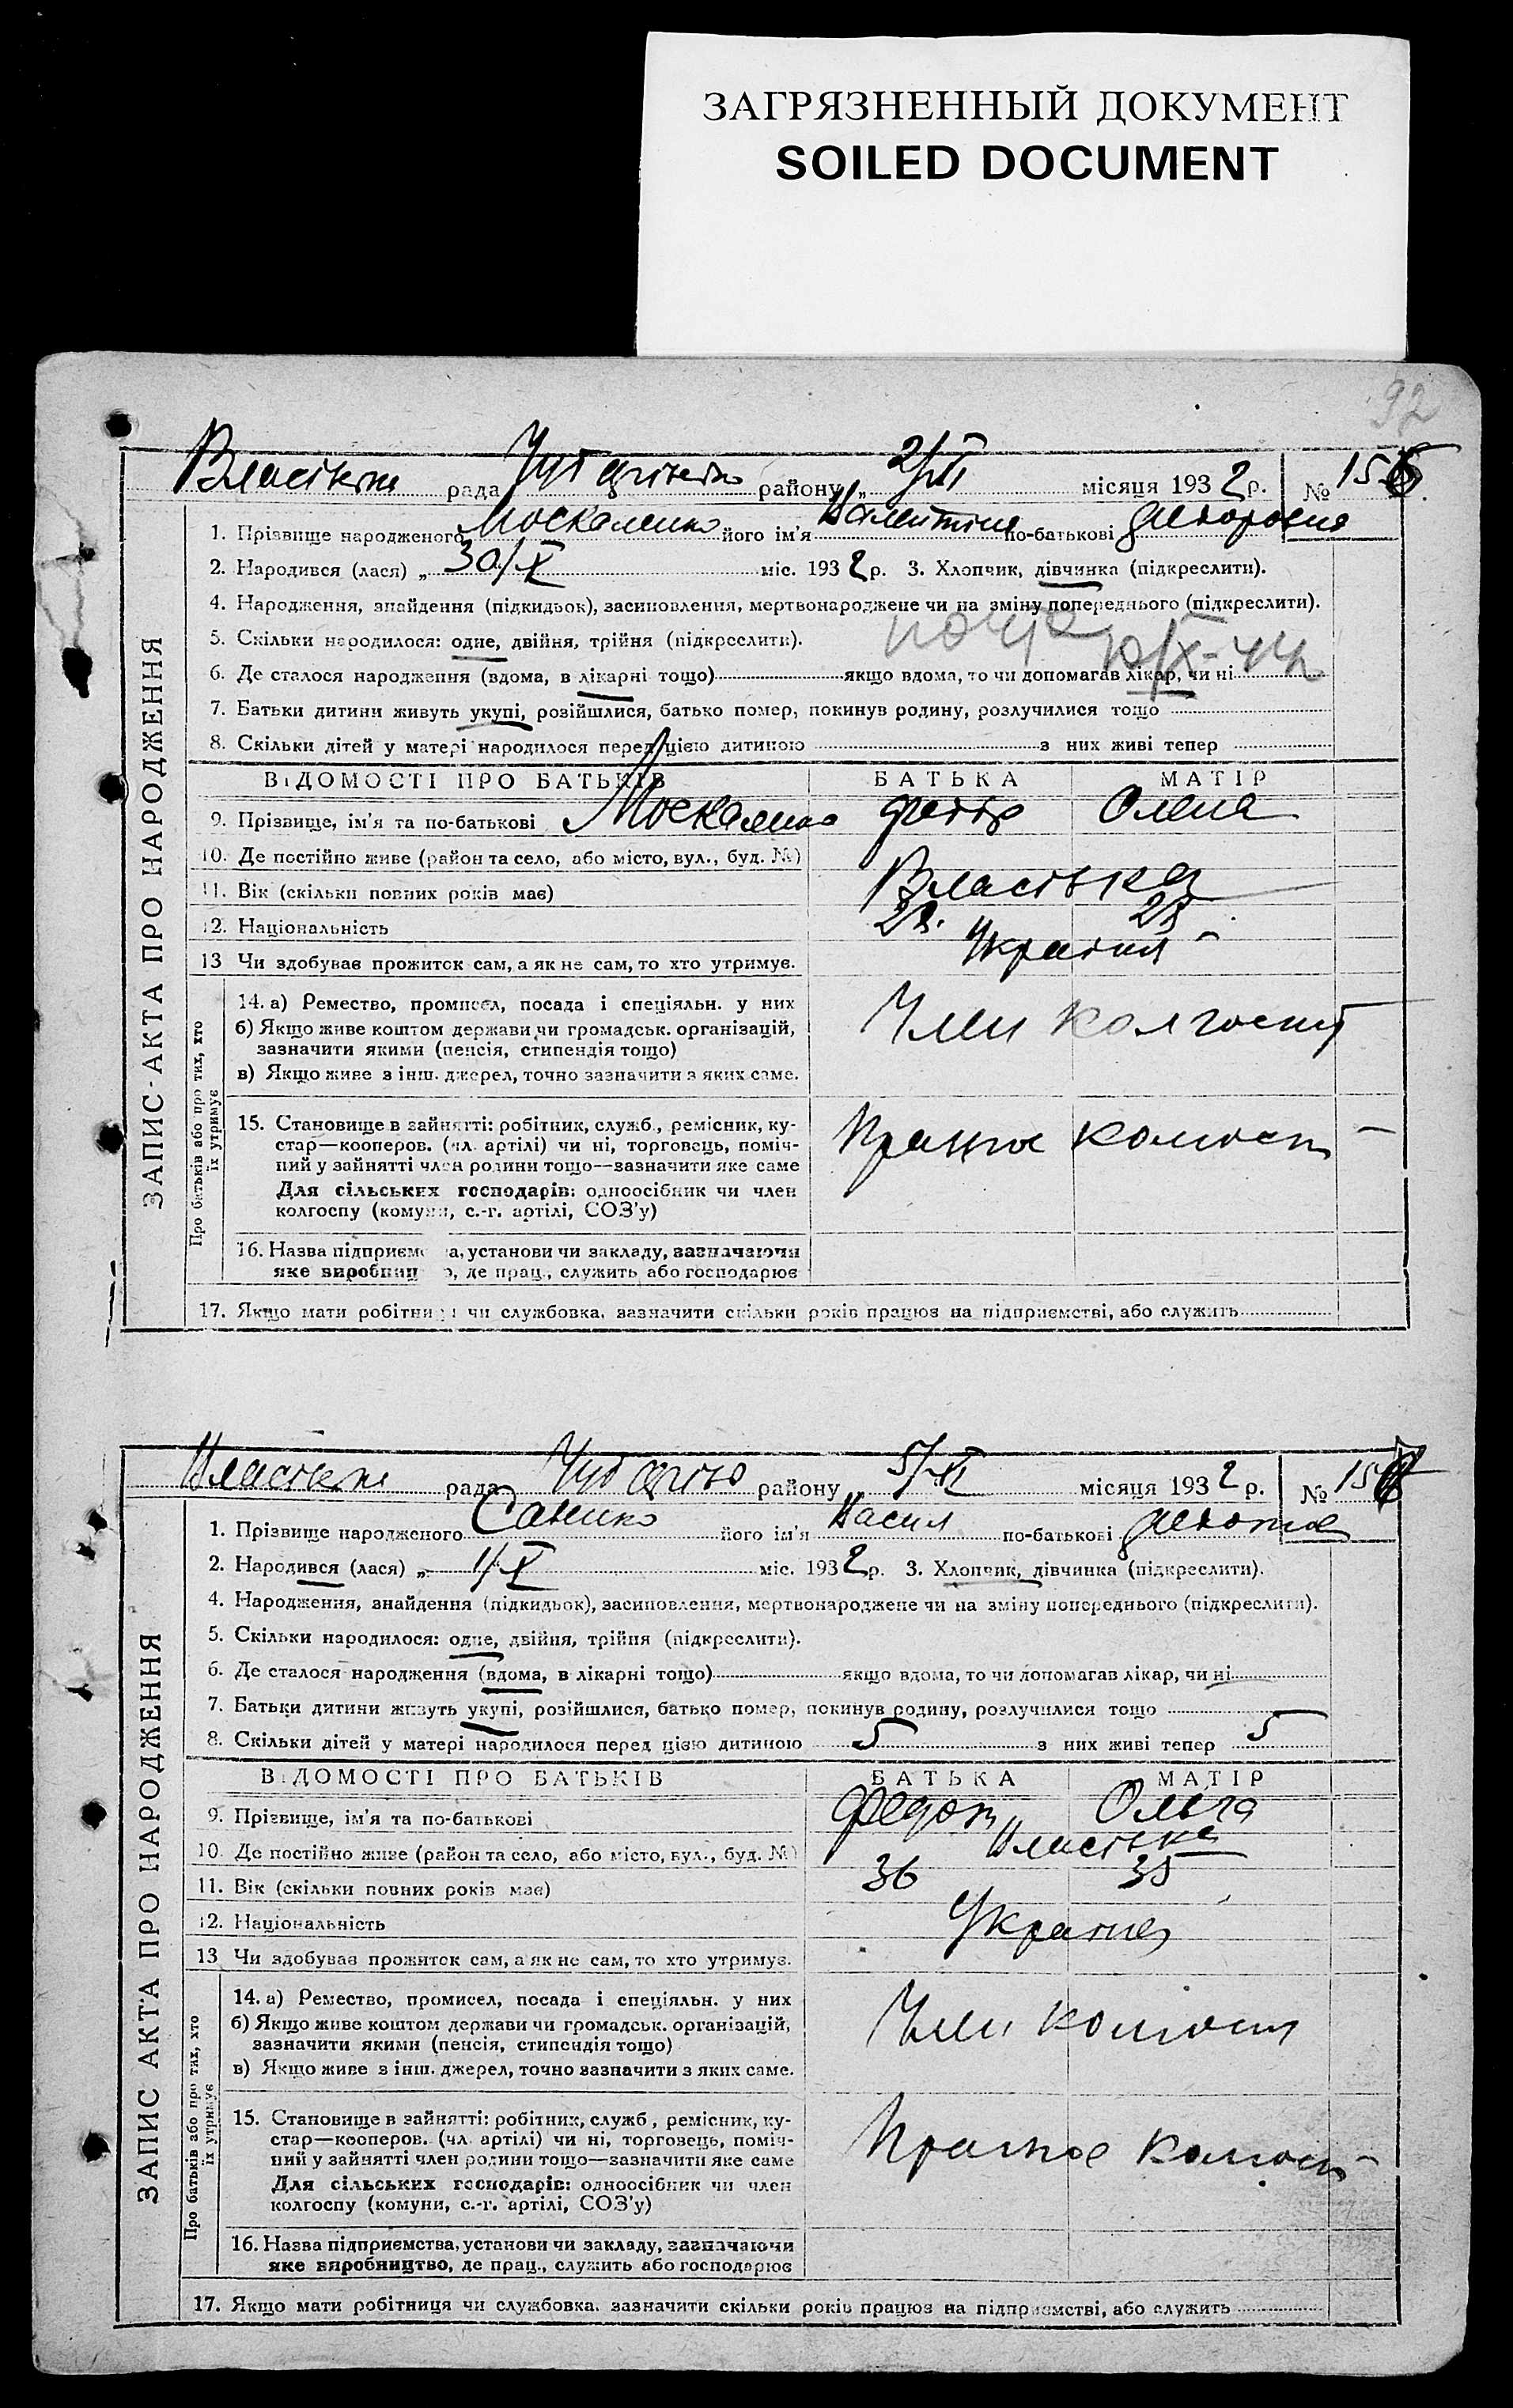 ЗАГРЯЗНЕННЫЙ ДОКУМЕНТ
SOILED DOCUMENT
92
рада району „ 2/XI місяця 1932 р. №
1. Прізвище народженого Москаленко його ім'я Валентина по-батькові
2. Народився (лася) „ 30/X міс. 1932 р. 3. Хлопчик, дівчинка (підкреслити).
4. Народження, знайдення (підкидьок), засиновлення, мертвонароджене чи на зміну попереднього (підкреслити).
5. Скільки народилося: одне, двійня, трійня (підкреслити).
6. Де сталося народження (вдома, в лікарні тощо) якщо вдома, то чи допомагав лікар, чи ні
7. Батьки дитини живуть укупі, розійшлися, батько помер, покинув родину, розлучилися тощо
8. Скільки дітей у матері народилося перед цією дитиною з них живі тепер
ВІДОМОСТІ ПРО БАТЬКІВ БАТЬКА МАТІР
9. Прізвище, ім'я та по-батькові Москаленко
10. Де постійно живе (район та село, або місто, вул., буд. №) Власівка
11. Вік (скільки повних років має)
12. Національність
13 Чи здобував прожиток сам, а як не сам, то хто утримує.
14. а) Ремество, промисел, посада і спеціяльн. у них
б) Якщо живе коштом держави чи громадськ. організацій,
зазначити якими (пенсія, стипендія тощо)
в) Якщо живе з інш. джерел, точно зазначити з яких саме.
Член колгоспу
15. Становище в зайнятті: робітник, служб., ремісник, ку-
стар—кооперов. (чл. артілі) чи ні, торговець, поміч-
ний у зайнятті член родини тощо—зазначити яке саме
Для сільських господарів: одноосібник чи член
колгоспу (комуни, с.-г. артілі, СОЗ'у)
16. Назва підприємства, установи чи закладу, зазначаючи
яке виробництво, де прац., служить або господарює
17. Якщо мати робітниця чи службовка, зазначити скільки років працює на підприємстві, або служить
ЗАПИС-АКТА ПРО НАРОДЖЕННЯ
Про батьків або про тих, хто
їх утримує
рада району „ 5/XI місяця 1932 р. №
1. Прізвище народженого його ім'я Васил по-батькові
2. Народився (лася) „ міс. 1932 р. 3. Хлопчик, дівчинка (підкреслити).
4. Народження, знайдення (підкидьок), засиновлення, мертвонароджене чи на зміну попереднього (підкреслити).
5. Скільки народилося: одне, двійня, трійня (підкреслити).
6. Де сталося народження (вдома, в лікарні тощо) якщо вдома, то чи допомагав лікар, чи ні
7. Батьки дитини живуть укупі, розійшлися, батько помер, покинув родину, розлучилися тощо
8. Скільки дітей у матері народилося перед цією дитиною 5 з них живі тепер 5
ВІДОМОСТІ ПРО БАТЬКІВ БАТЬКА МАТІР
9. Прізвище, ім'я та по-батькові Федот Ольга
10. Де постійно живе (район та село, або місто, вул., буд. №) Власівка
11. Вік (скільки повних років має) 36 35
12. Національність
13 Чи здобував прожиток сам, а як не сам, то хто утримує.
14. а) Ремество, промисел, посада і спеціяльн. у них
б) Якщо живе коштом держави чи громадськ. організацій,
зазначити якими (пенсія, стипендія тощо)
в) Якщо живе з інш. джерел, точно зазначити з яких саме.
Член
15. Становище в зайнятті: робітник, служб., ремісник, ку-
стар—кооперов. (чл. артілі) чи ні, торговець, поміч-
ний у зайнятті член родини тощо—зазначити яке саме
Для сільських господарів: одноосібник чи член
колгоспу (комуни, с.-г. артілі, СОЗ'у)
16. Назва підприємства, установи чи закладу, зазначаючи
яке виробництво, де прац., служить або господарює
17. Якщо мати робітниця чи службовка, зазначити скільки років працює на підприємстві, або служить
ЗАПИС АКТА ПРО НАРОДЖЕННЯ
Про батьків або про тих, хто
їх утримує